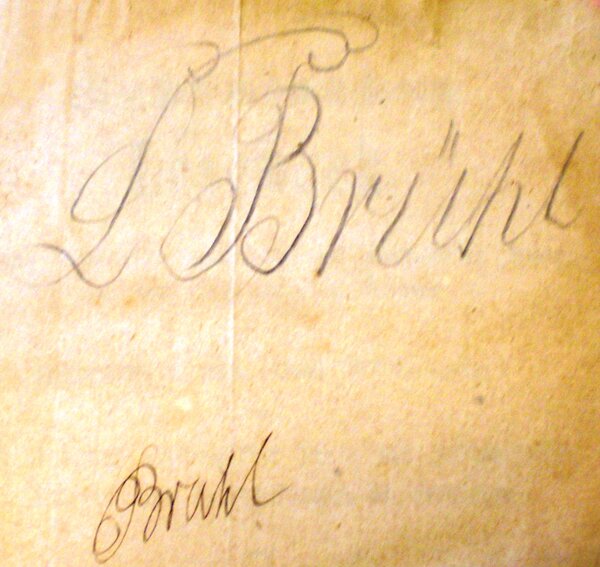 L Brühl
Bruhl